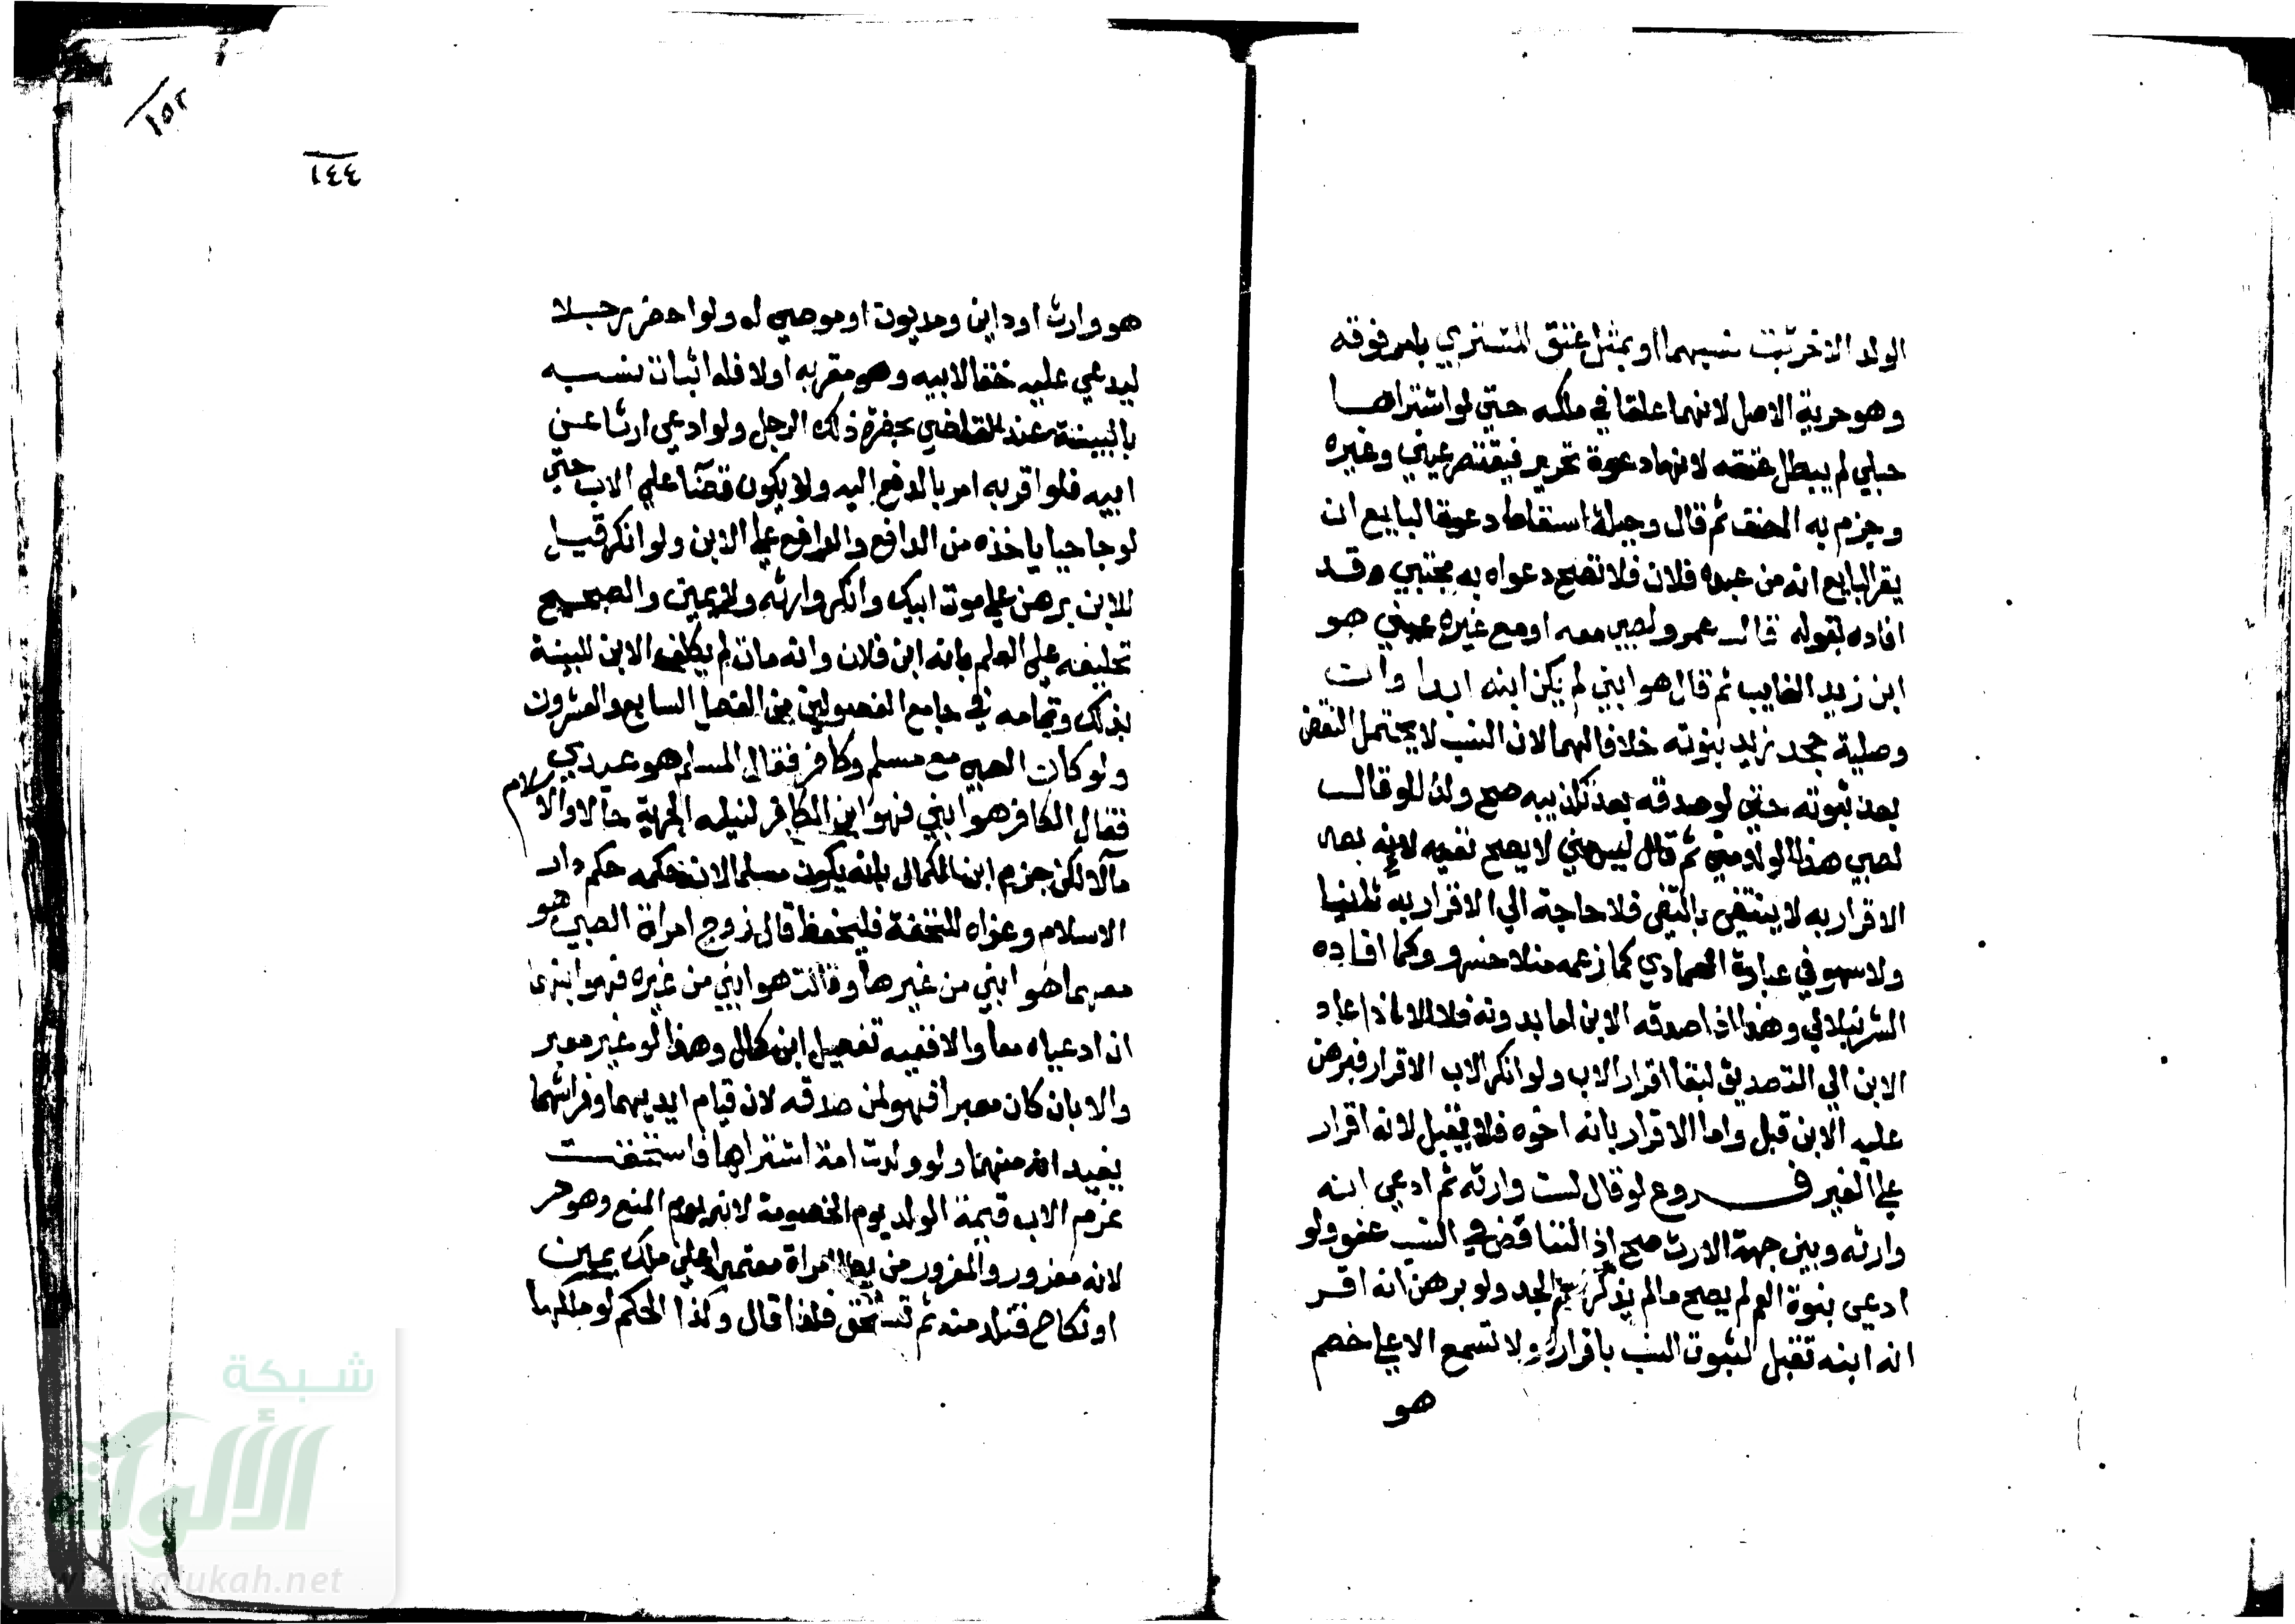 الولد الاخر ثبت نسبهما او بمثل عتق المشتري بامر فوقه
وهو حرية الاصل لانهما علقا في ملكه حتي لو اشتراها
حبلي لم يبطل عتقه لانها دعوة تحرير فيقتصر عيني وغيره
وجزم به المصنف ثم قال وحيلة اسقاط دعوة البايع ان
يقر البايع انه من عبده فلان فلا تصح دعواه به مجتبي وقد
افاده بقوله قال عمرو لصبي معه او مع غيره عيني هو
ابن زيد الغايب ثم قال هو ابني لم يكن ابنه ابدا وان
وصلية جحد زيد بنوته خلافا لهما لان النسب لا يحتمل النقض
بعد ثبوته حتي لو صدقه بعد تكذيبه صح ولذا لو قال
لصبي هذا الولد مني ثم قال ليس مني لا يصح نفيه لانه بعد
الاقرار به لا ينتفي بالنفي فلا حاجة الي الاقرار به ثانيا
ولا سهو في عبارة العمادي كما زعمه منلا خسرو كما افاده
الشرنبلالي وهذا اذا صدقه الابن اما بدونه فلا الا اذا عاد
الابن الي التصديق لبقا اقرار الاب ولو انكر الاب الاقرار فبرهن
عليه الابن قبل واما الاقرار بانه اخوه فلا يقبل لانه اقرار
علي الغير فروع لو قال لست وارثه ثم ادعي انه
وارثه وبين جهة الارث صح اذ التناقض في النسب عفو ولو
ادعي بنوة العم لم يصح مالم يذكر اسم الجد ولو برهن انه اقر
انه ابنه تقبل لثبوت النسب باقراره ولا تسمع الا علي خصم
هو
١٥٢
١٤٤
هو وارث او داين ومديون او موصي له ولو احضر رجلا
ليدعي عليه حقا لابيه وهو مقر به اولا فله اثبات نسبه
بالبينة عند القاضي بحضرة ذلك الرجل ولو ادعي ارثا عن
ابيه فلو اقر به امر بالدفع اليه ولا يكون قضآ علي الاب حتي
لو جا حيا ياخذه من الدافع والدافع علي الابن ولو انكر قيل
للابن برهن علي موت ابيك وانك وارثه ولا يمين والصحيح
تحليفه علي العلم بانه ابن فلان وانه مات ثم يكلف الابن للبينة
بذلك وتمامه في جامع الفصولين من الفصل السابع والعشرون
ولو كان الصبي مع مسلم وكافر فقال المسلم هو عبدي
فقال الكافر هو ابني فهو ابن الكافر لنيله الحرية حالا والاسلام
مآلا لكن جزم ابن الكمال بانه يكون مسلما لان حكمه حكم دار
الاسلام وعزاه للتحفة فليحفظ قال زوج امراة الصبي هو
معهما هو ابني من غيرها وقالت هو ابني من غيره فهو ابنهما
ان ادعياه معا والا ففيه تفصيل ابن كمال وهذا لو غير معبر
والا بان كان معبرا فهو لمن صدقه لان قيام ايديهما وفراشهما
يفيد انه منهما ولو ولدت امة اشتراها فاستحقت
غرم الاب قيمة الولد يوم الخصومة لانه يوم المنع وهو حر
لانه مغرور والمغرور من يطا امراة معتمدا علي ملك يمين
او نكاح فتلد منه ثم تستحق فلذا قال وكذا الحكم لو ملكها
شبكة
الألوكة
www.alukah.net